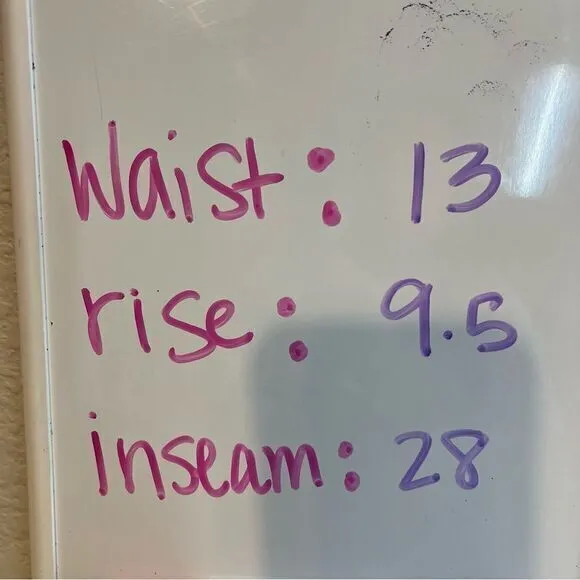 Waist: 13
rise: 9.5
inseam: 28